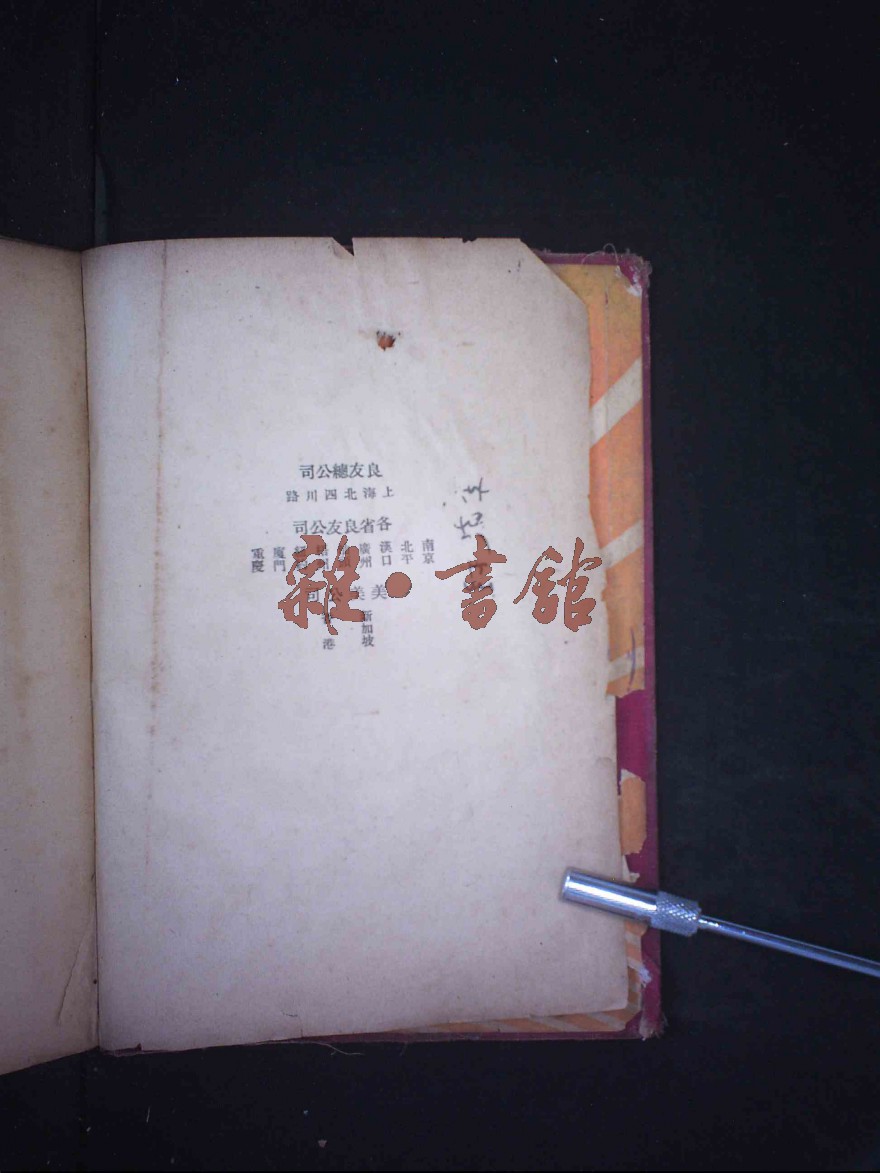 良友總公司
上海北四川路
各省良友公司
南京 北平 漢口 廣州 廈門 重慶
美美公司
新加坡 香港
雜·書館